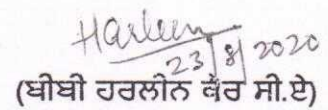 Harleen
23/8/2020
(ਬੀਬੀ ਹਰਲੀਨ ਕੌਰ ਸੀ.ਏ)